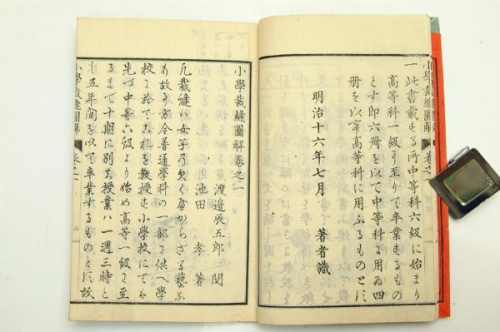 一此書載する所中等科六級に始まり
高等科一級に至りて卒業するもの
とす即六冊を以て中等科に用ゐ四
冊を以て高等科に用ふるものとす
明治十六年七月
著者識
小學裁縫圖解卷之一
渡邉辰五郎 閲
池田 孝 著
凡裁縫ハ女子の欠く可からざる藝
故に方今普通學科の一部に供へ學
校に於て之れを教授す小學校にてハ
先づ中等六級より始め高等一級に至
まで十期に別ち授業ハ一週三時と
五年間を以て卒業するものとす故
小學裁縫圖解
卷之一
小學裁縫圖解
卷之一